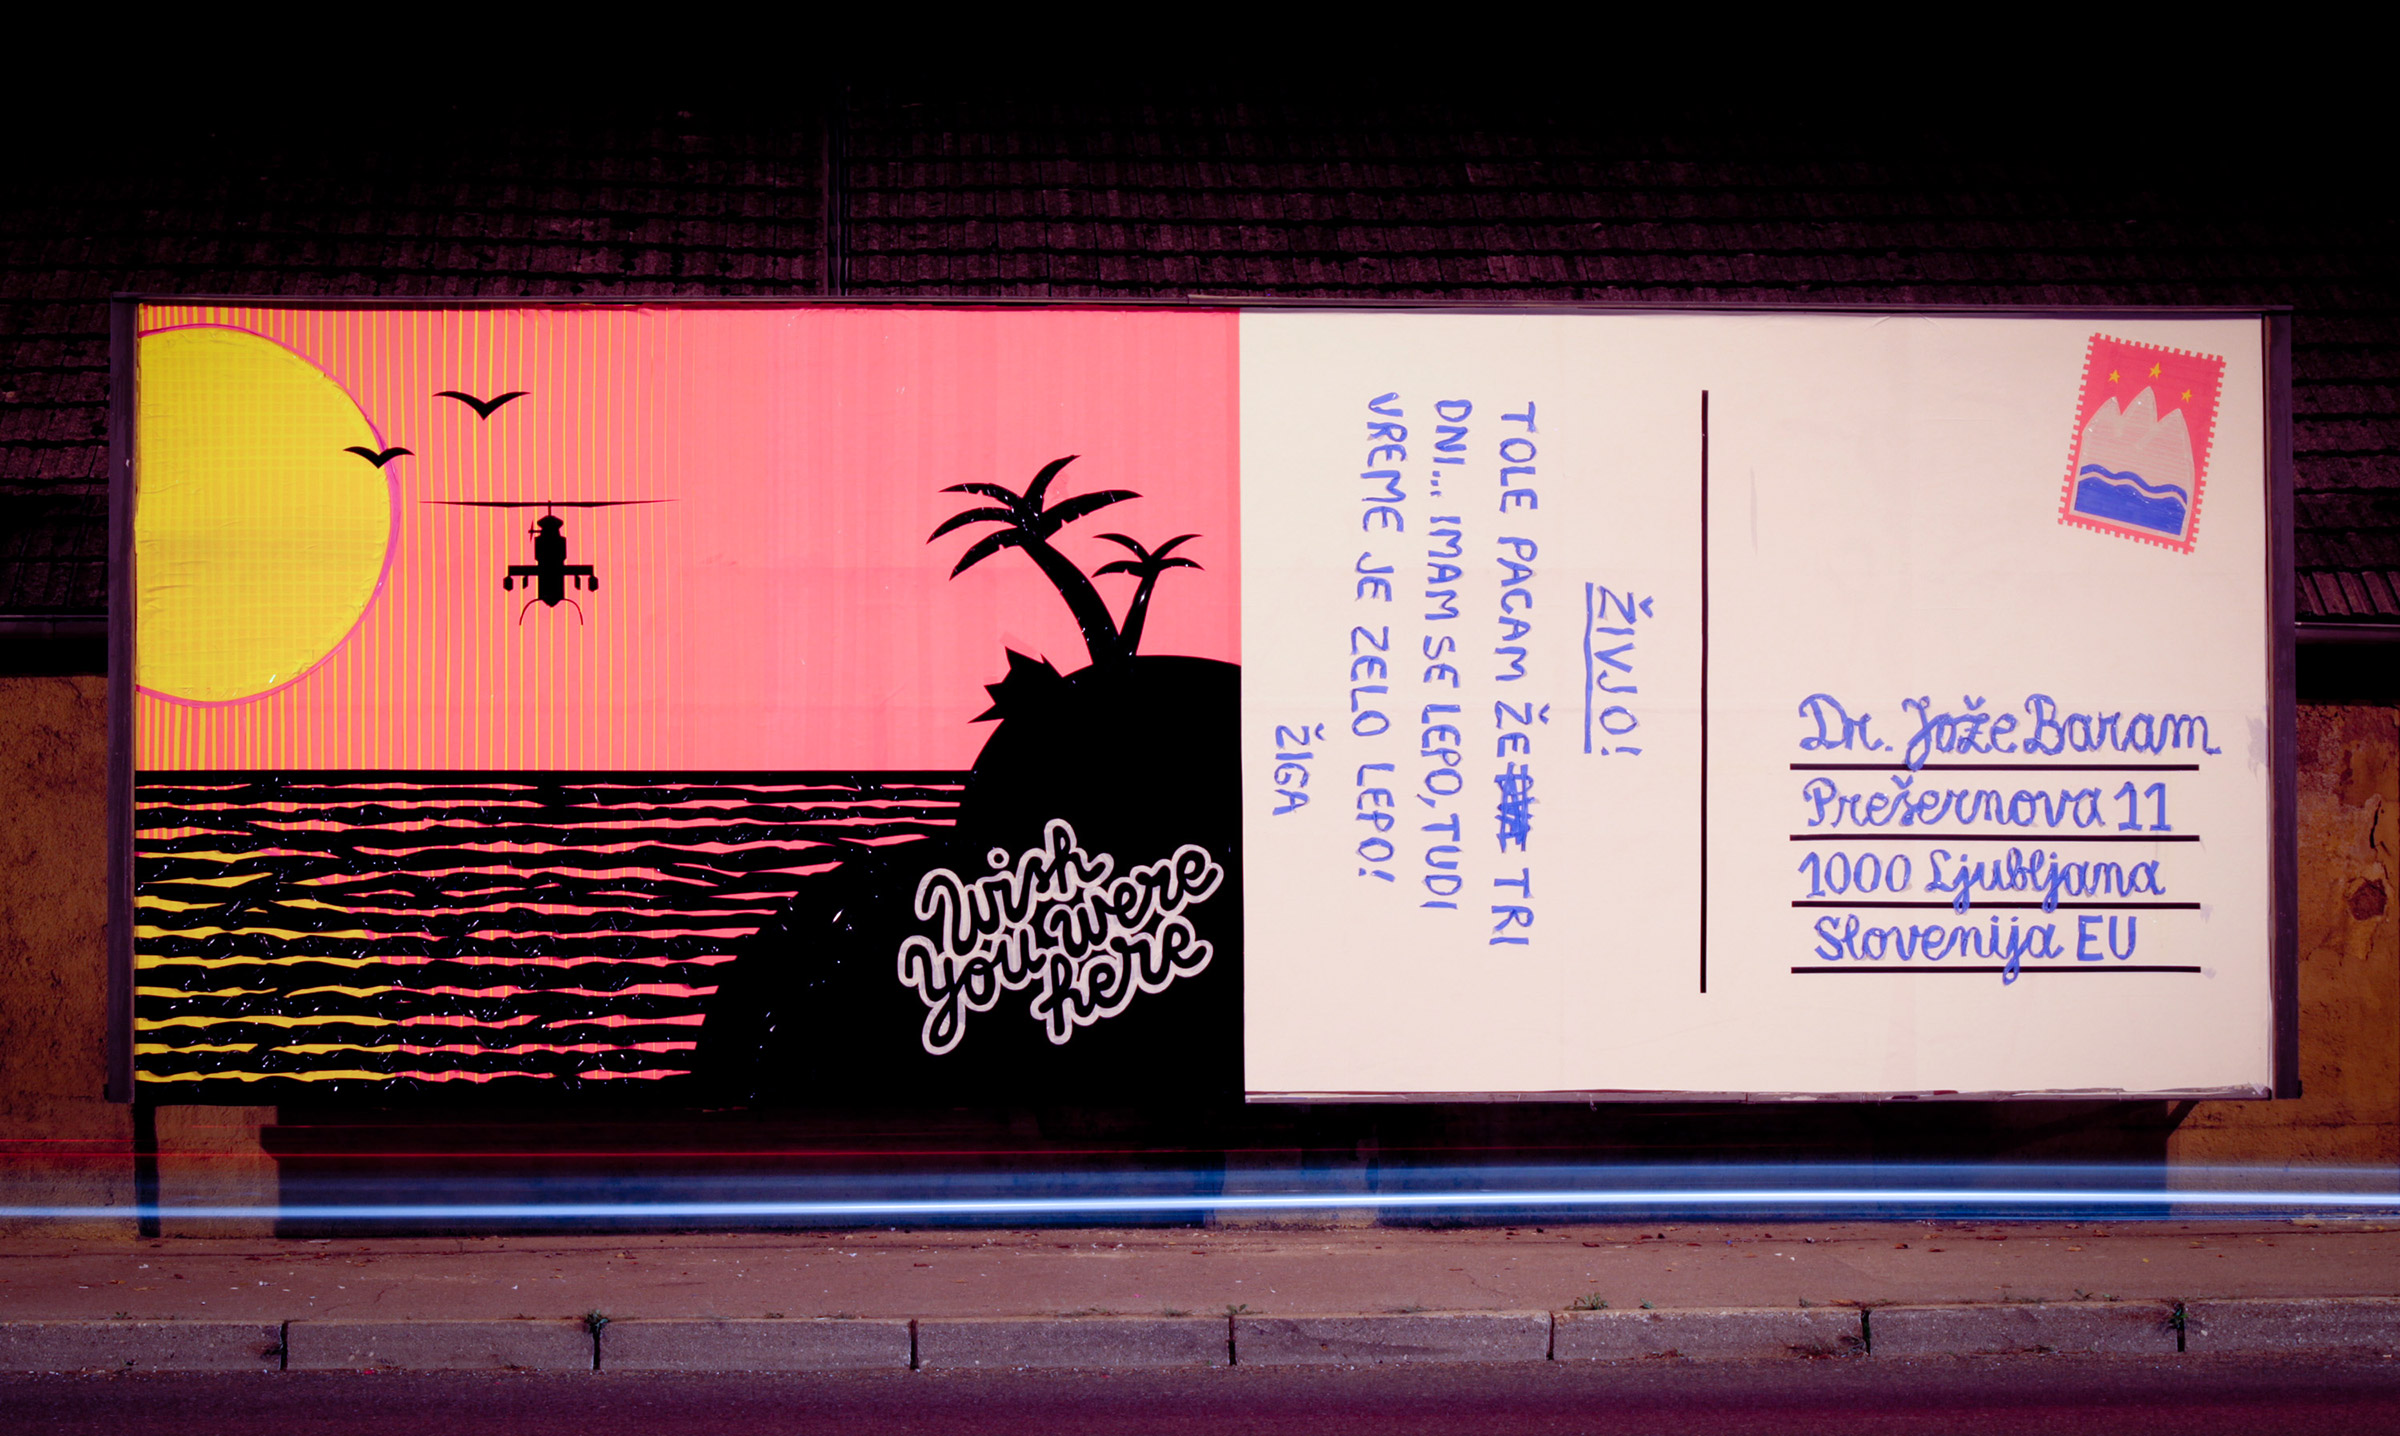 Wish
You were
here
ŽIVJO!
TOLE PACAM ŽE TRI
DNI... IMAM SE LEPO, TUDI
VREME JE ZELO LEPO!
ŽIGA
Dr. Jože Baram
Prešernova 11
1000 Ljubljana
Slovenija EU